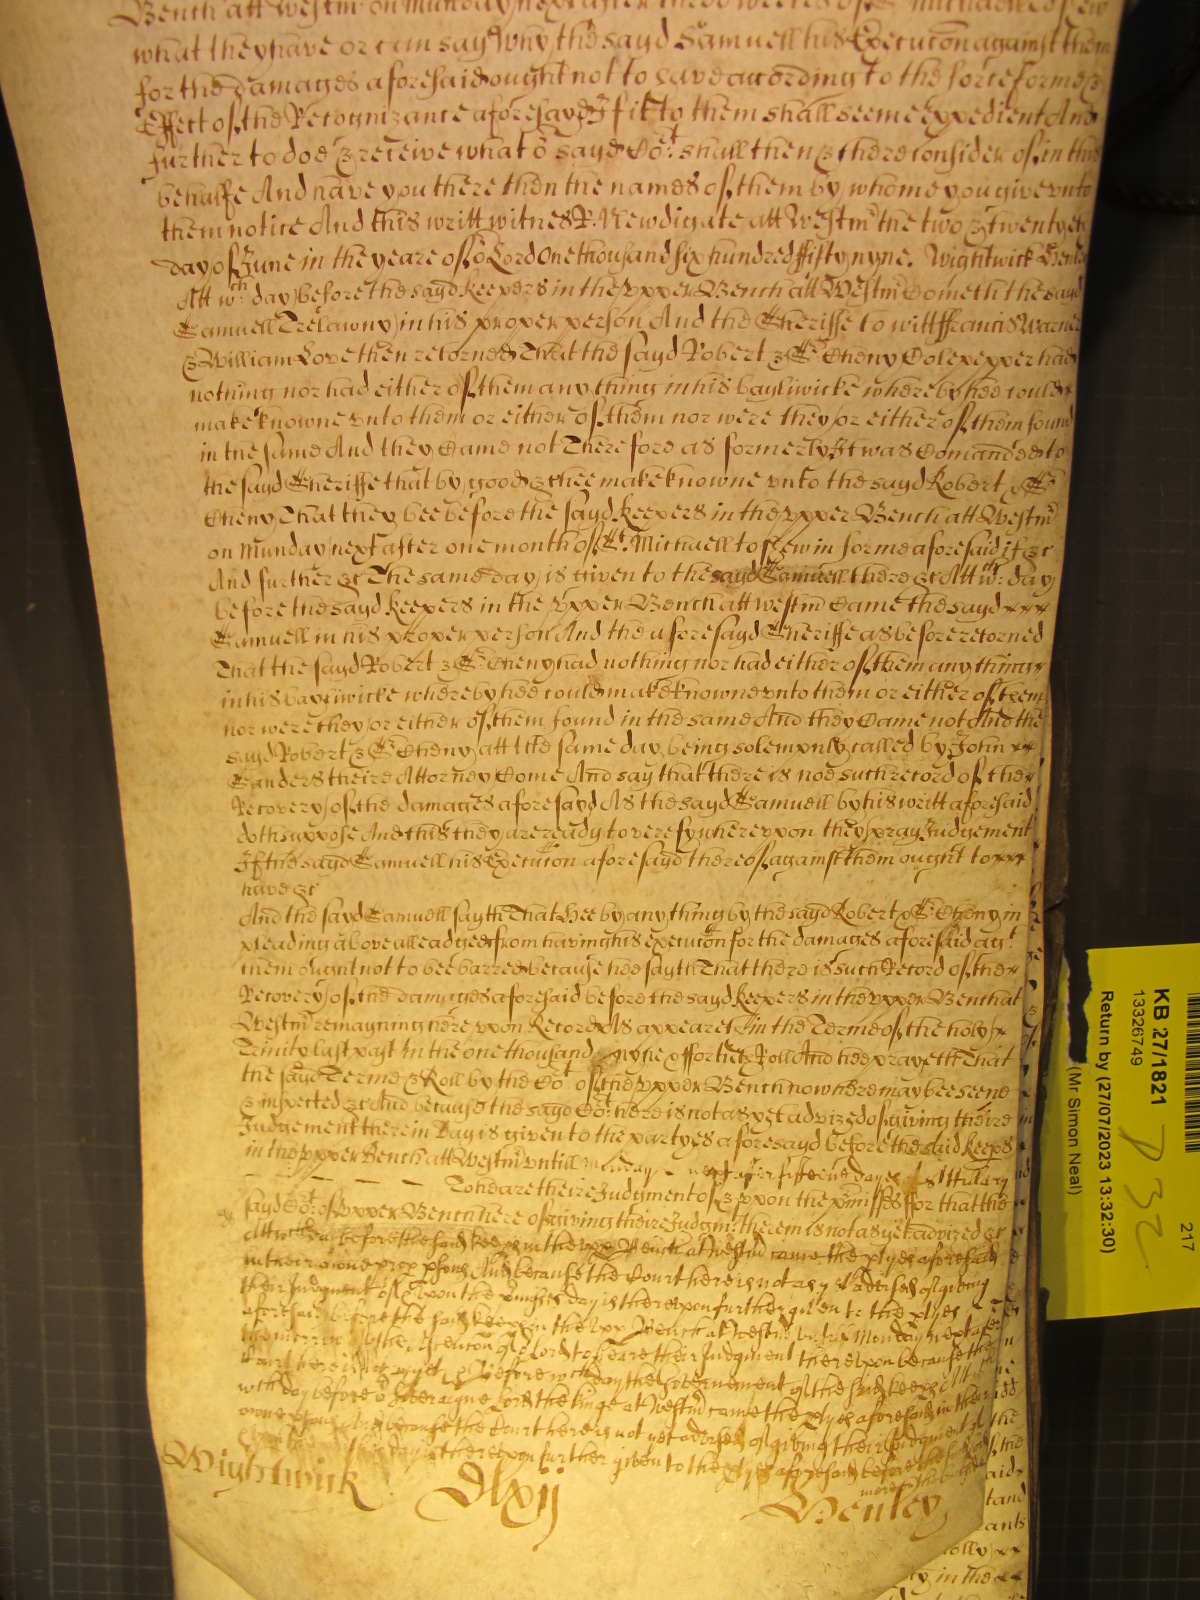 Bench att Westm on Munday next after three weekes of St Michaell to shew
what they have or can say Why the sayd Samuell his Execucon against them
for the damages aforesaid ought not to have according to the force forme &
Effect of the Recognizance aforesayd If it to them shall seeme expedient And
further to doe & receive what o sayd Cot: shall then & there consider of in this
behalfe And have you there then the names of them by whome you give vnto
them notice And this writt witnes R: Newdigate att Westm the two & twentyeth
day of June in the yeare of o Lord One thousand six hundred ffifty nyne. Wightwick Henley
Att wch: day before the sayd keepers in the Vpper Bench att Westm Cometh the sayd
Samuell Trelawny in his proper person And the Sheriffe to witt ffrancis Warner
& William Love then retorned That the sayd Robert & Sr Cheny Colepepper had
nothing nor had either of them any thing in his bayliwicke whereby hee could
make knowne vnto them or either of them nor were they or either of them found
in the same And they Came not Therefore as formerly It was Comanded to
the sayd Sheriffe that by good &c hee make knowne vnto the sayd Robert & Sr
Cheny That they bee before the sayd keepers in the Vpper Bench att Westm
on Munday next after one month of St. Michaell to shew in forme aforesaid if &c
And further &c The same day is given to the sayd Samuell there &c Att wch: day
before the sayd keepers in the Vpper Bench att Westm Came the sayd
Samuell in his proper person And the aforesayd Sheriffe as before retorned
That the sayd Robert & Sr Cheny had nothing nor had either of them any thing
in his bayliwicke whereby hee could make knowne vnto them or either of them
nor were they or either of them found in the same And they Came not And the
sayd Robert & Sr Cheny att the same day being solempnly called by John
Sanders theire Attorney Come And say that there is noe such record of the
Recovery of the damages aforesayd As the sayd Samuell by his writt aforesaid
doth suppose And this they are ready to verefy where vpon they pray Judgement
If the sayd Samuell his Execucon aforesayd thereof against them ought to
have &c
And the sayd Samuell sayth That Hee by any thing by the sayd Robert & Sr Cheny in
pleading above alleadged from having his execucon for the damages aforesaid agt
them ought not to bee barred because hee sayth That there is such Record of the
Recovery of the damages aforesaid before the sayd keepers in the Vpper Bench at
Westm remayning here vpon Record As appeareth in the Terme of the holy
Trinity last past In the one thousand nyne & fortieth Roll And hee prayeth That
the sayd Terme & Roll by the Cot of the Vpper Bench now here may bee seene
& inspected &c And because the sayd Cot: here is not as yet advized of giving theire
Judgement therein Day is given to the partyes aforesayd before the said keeps
in the Vpper Bench att Westm vntill Munday next after fifteene dayes of St Hillary
To heare theire Judgment of & vpon the pmisses ffor that the
sayd Cot: of Vpper Bench here of giving theire Judgmt: therein is not as yet advized &c
Att wch day before the said keeps in the vpp Bench at Westm came the ptyes aforesaid
in their owne prop psons And because the Court here is not as yet advised of giving
their Judgment of & vpon the pmisses day is therevpon further given to the ptyes
aforesaid before the said keeps in the vpp Bench at Westm vntill Monday next after
the morrow of the Ascencon of o Lord to heare their Judgment therevpon because the
Court here is not as yet &c before wch day the Government of the said keeps
wch day before o Soveraigne Lord the kinge at Westm came the ptyes aforesaid in their
owne psons And because the Court here is not yet advised of giving their Judgment of &
day is therevpon further given to the ptyes aforesaid before the
more on the backside
Wightwick Dlxij Henley
KB 27/1821
13326749
217
Return by (27/07/2023 13:32:30)
(Mr Simon Neal)